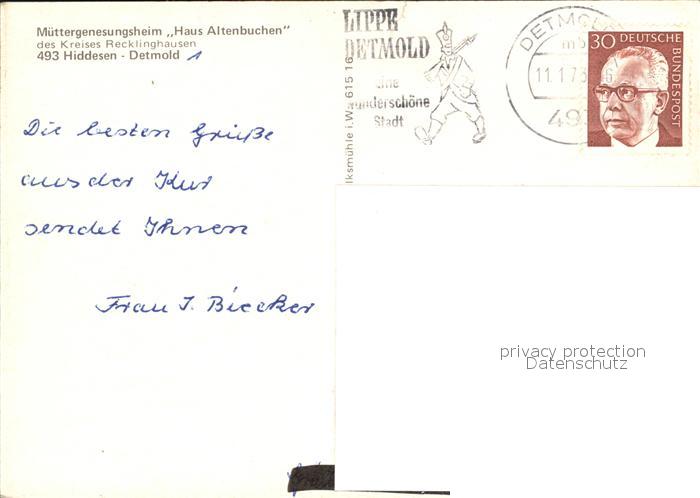 Müttergenesungsheim „Haus Altenbuchen"
des Kreises Recklinghausen
493 Hiddesen - Detmold 1
Die besten Grüße
aus der Kur
sendet Ihnen
Frau I. Biecker
LIPPE
DETMOLD
eine
wunderschöne
Stadt
615 16
lksmühle i.W.
DETMOLD
11.1.73
493
30 DEUTSCHE
BUNDESPOST
privacy protection
Datenschutz